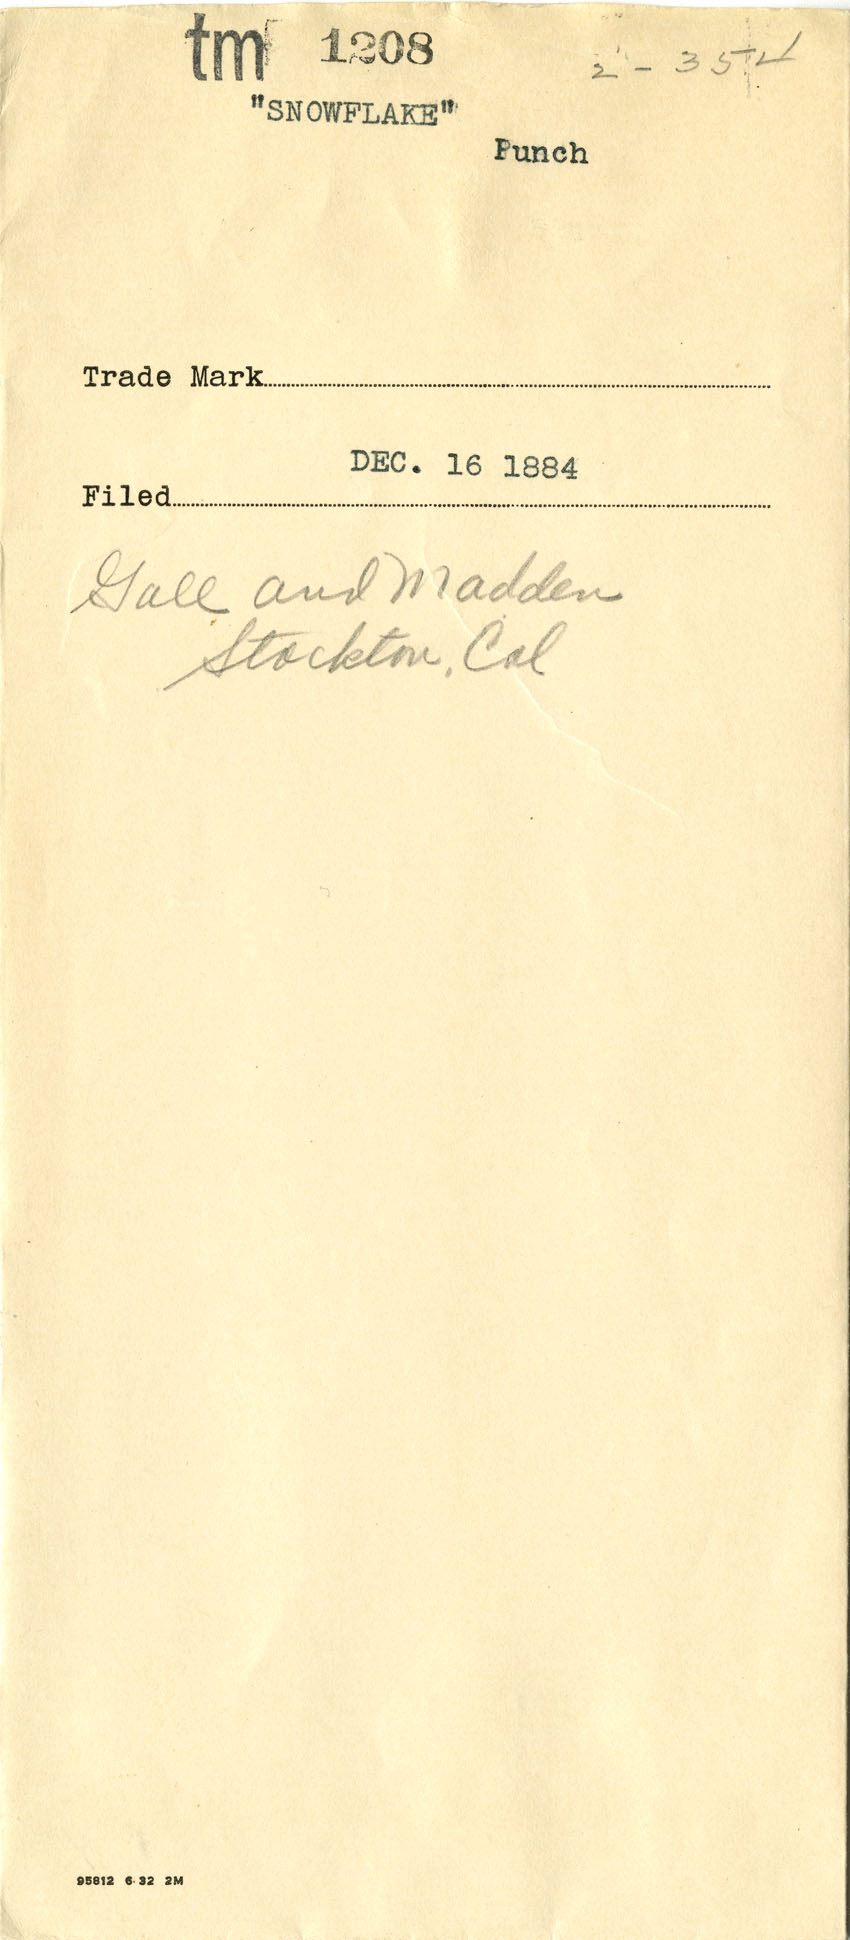 tm 1208
2-354
"SNOWFLAKE"
Punch
Trade Mark
DEC. 16 1884
Filed
Gall and Madden
Stockton, Cal
95812 6-32 2M